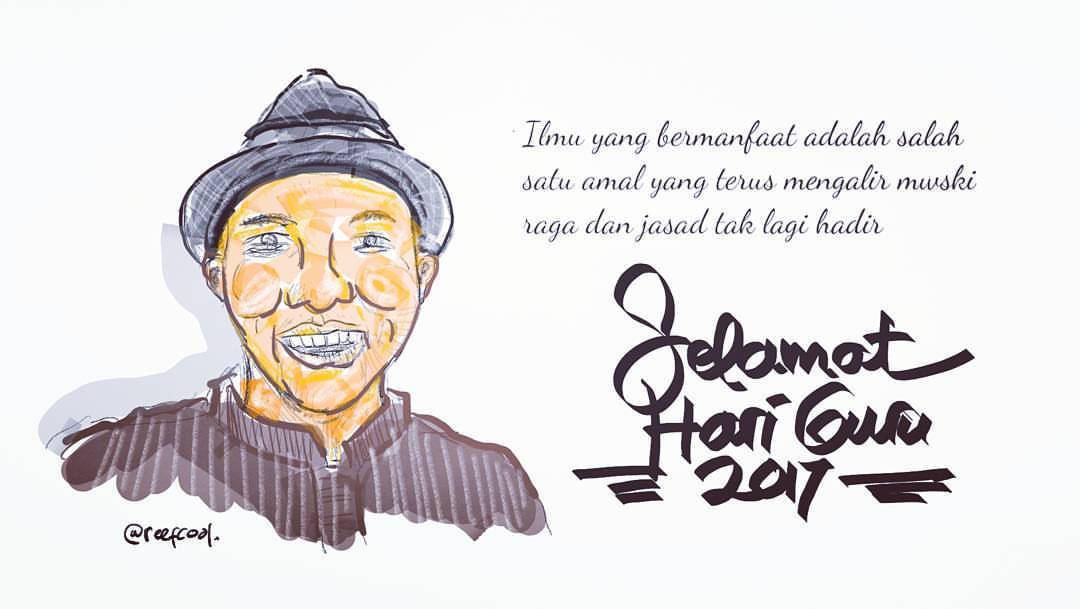 Ilmu yang bermanfaat adalah salah
satu amal yang terus mengalir mwski
raga dan jasad tak lagi hadir
Selamat
Hari Guru
2017
@reefcool.